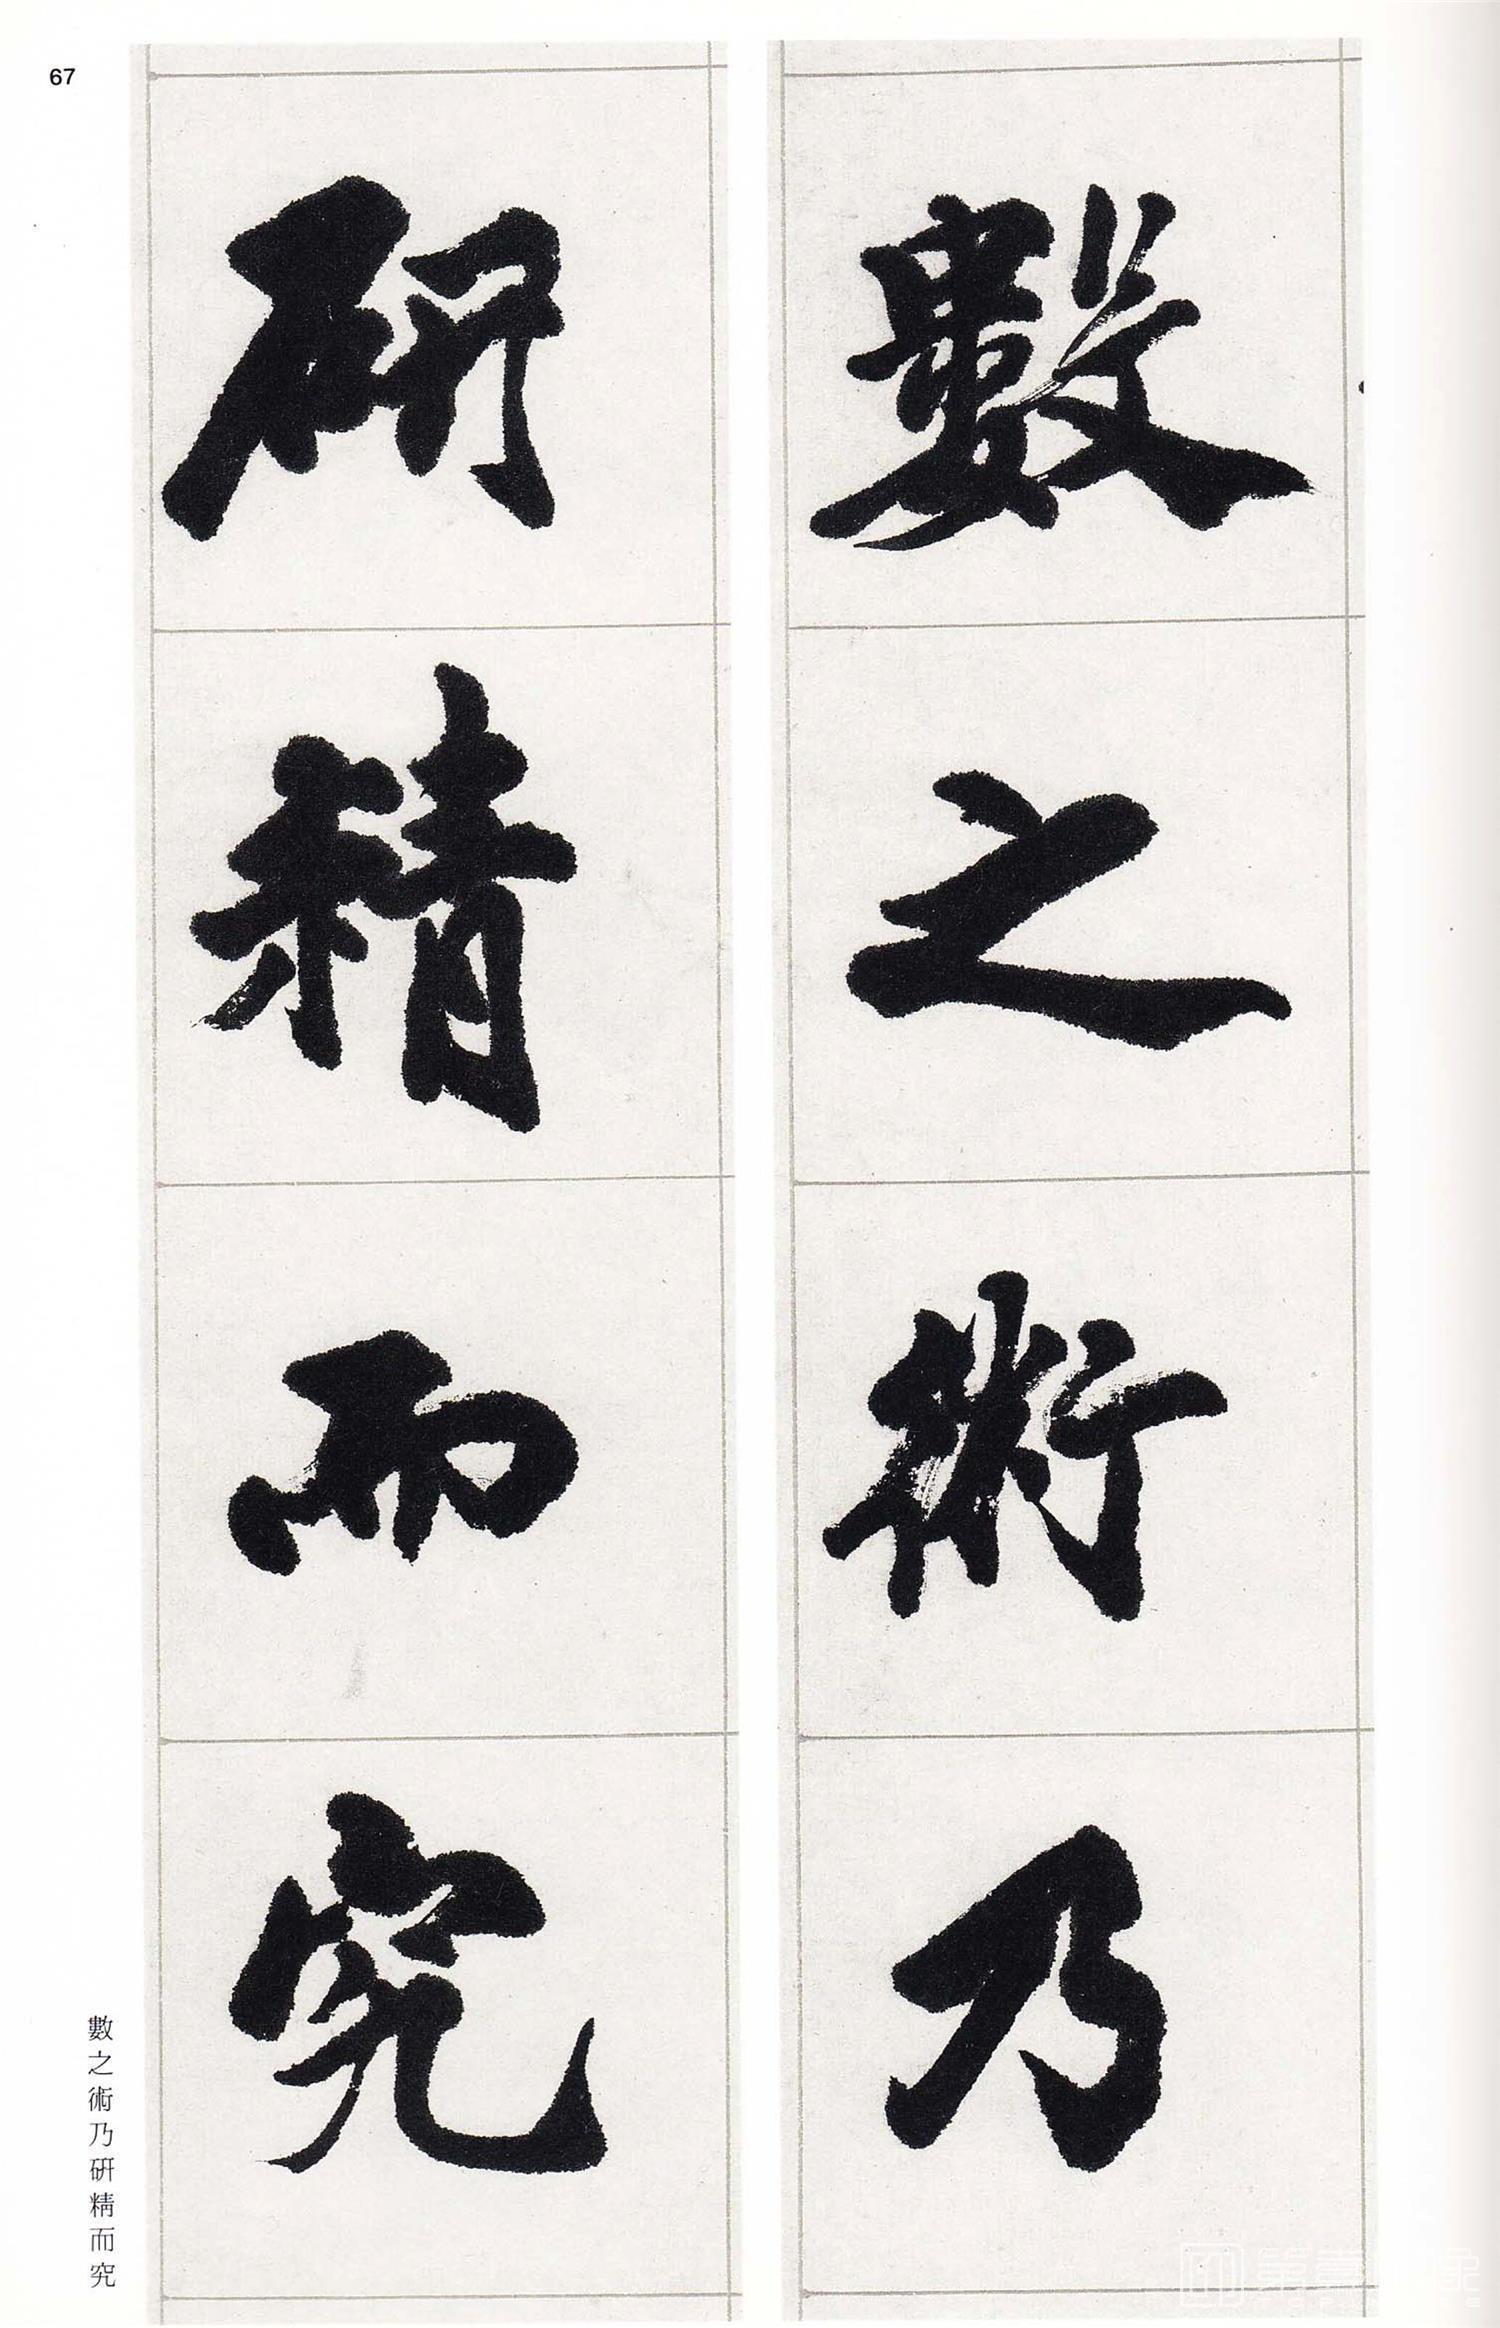 67
數之術乃
研精而究
數之術乃研精而究